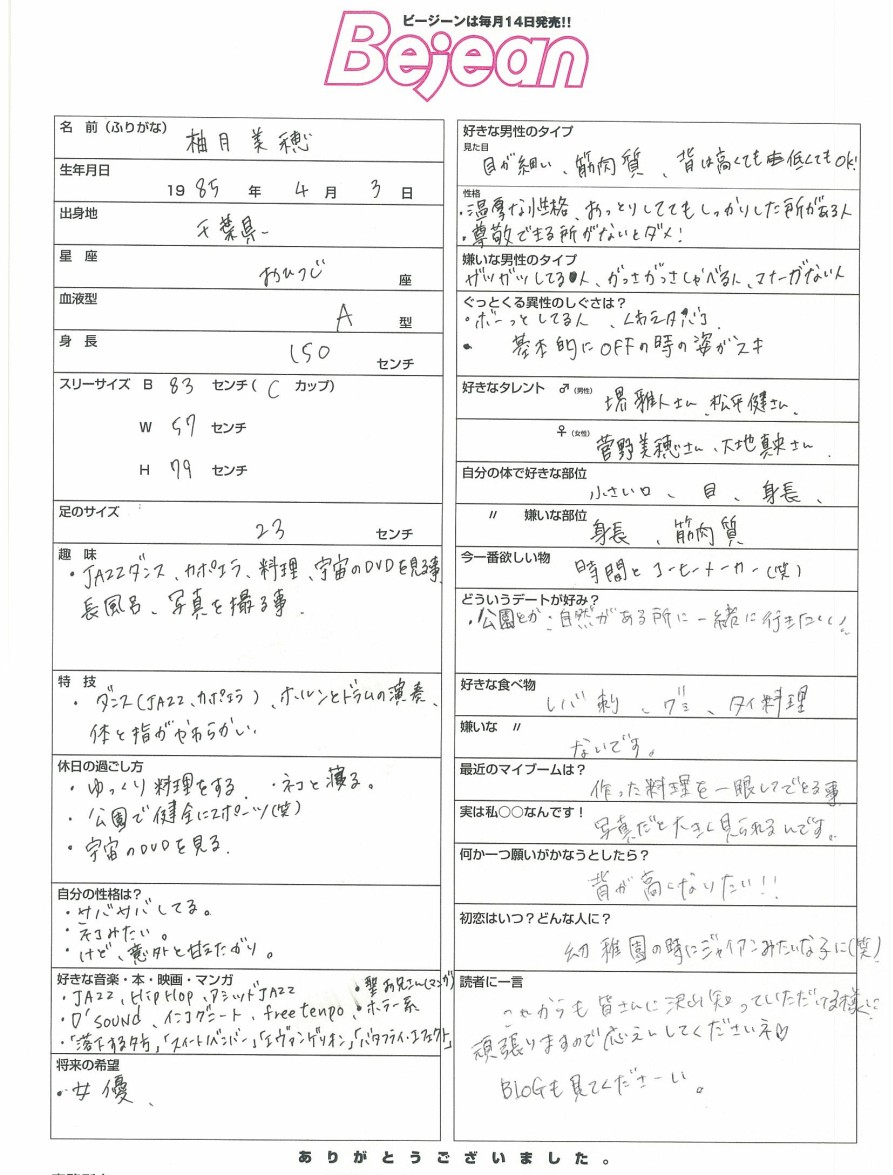 ビージーンは毎月14日発売!!
Bejean
名 前（ふりがな）
柚月美穂
生年月日
1985年 4月 3日
出身地
千葉県
星 座
おひつじ 座
血液型
A 型
身 長
150 センチ
スリーサイズ B 83 センチ( C カップ)
W 57 センチ
H 79 センチ
足のサイズ
23 センチ
趣 味
・JAZZダンス、カポエラ、料理、宇宙のDVDを見る事
長風呂、写真を撮る事.
特 技
・ダンス(JAZZ、カポエラ)、ホルンとドラムの演奏、
体と指がやわらかい.
休日の過ごし方
・ゆっくり料理をする. ・ネコと寝る。
・公園で健全にスポーツ(笑)
・宇宙のDVDを見る.
自分の性格は？
・サバサバしてる。
・ネコみたい。
・けど、意外と甘えたがり。
好きな音楽・本・映画・マンガ
・JAZZ、HipHop、アシッドJAZZ ・聖お兄さん(マンガ)
・D'SOUND、インコグニート、freetempo、・ホラー系
・「落下する夕方」「スイートリトル」「エヴァンゲリオン」「バタフライ・エフェクト」
将来の希望
・女優、
好きな男性のタイプ
見た目
目が細い、筋肉質、背は高くても低くてもOK!
性格
・温厚な性格、おっとりしててもしっかりした所がある人
・尊敬できる所がないとダメ!
嫌いな男性のタイプ
ガツガツしてる人、がっさがっさしゃべる人、マナーがない人
ぐっとくる異性のしぐさは？
・ボーっとしてる人、くわえタバコ
・ 基本的にOFFの時の姿がスキ
好きなタレント ♂(男性) 堺雅人さん、松平健さん、
♀(女性) 菅野美穂さん、大地真央さん.
自分の体で好きな部位
小さい口、目、身長、
〃 嫌いな部位
身長、筋肉質
今一番欲しい物
時間とコーヒーメーカー(笑)
どういうデートが好み？
・公園とか:自然がある所に一緒に行きたいい!
好きな食べ物
レバ刺、グミ、タイ料理
嫌いな 〃
ないです。
最近のマイブームは？
作った料理を一眼レフでとる事
実は私○○なんです！
写真だと大きく見られるんです。
何か一つ願いがかなうとしたら？
背が高くなりたい!!
初恋はいつ？どんな人に？
幼稚園の時にジャイアンみたいな子に(笑)
読者に一言
これからも皆さんに沢山知っていただける様に
頑張りますので応えんしてくださいネ♡
BLOGも見てくださーい。
ありがとうございました。